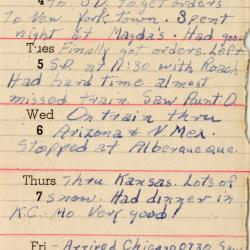 4 to S.D. to get orders
to New York town. Spent
night at Magda's. Had good
Tues Finally got orders. Left
5 S.D. at 11:30 with Roach
Had hard time almost
missed train. Saw Punt. D.
Wed On train thru
6 Arizona & N. Mex.
Stopped at Alberqueque.
Thurs Thru Kansas. Lots of
7 snow. Had dinner in
K.C. Mo. Very good!
Fri - Arrived Chicago 0730 Saw